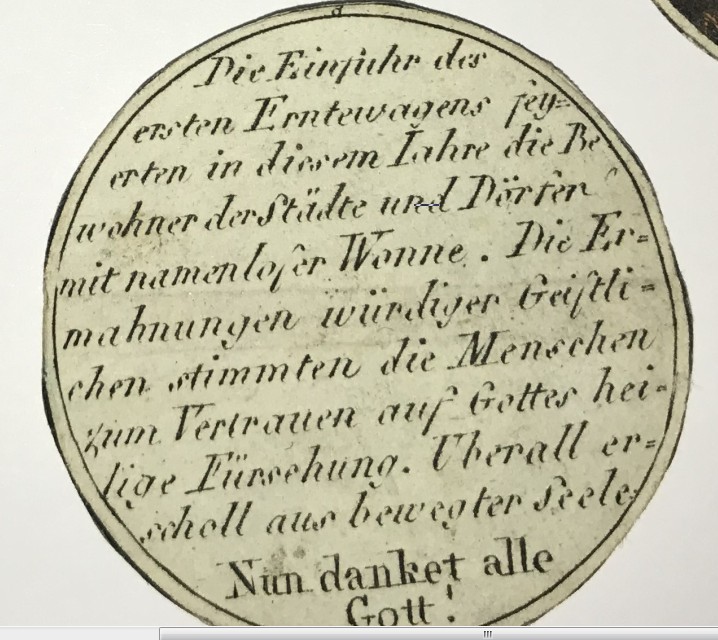 Die Einfuhr des
ersten Erntewagens fey=
erten in diesem Iahre die Be
wohner der Städte und Dörfer
mit namenloſer Wonne. Die Er=
mahnungen würdiger Geiſtli=
chen stimmten die Menschen
zum Vertrauen auf Gottes hei=
lige Fürsehung. Uberall er=
scholl aus bewegter Seele
Nun danket alle
Gott!